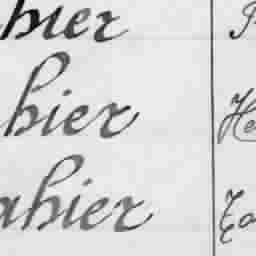 hier
hier He
ahier